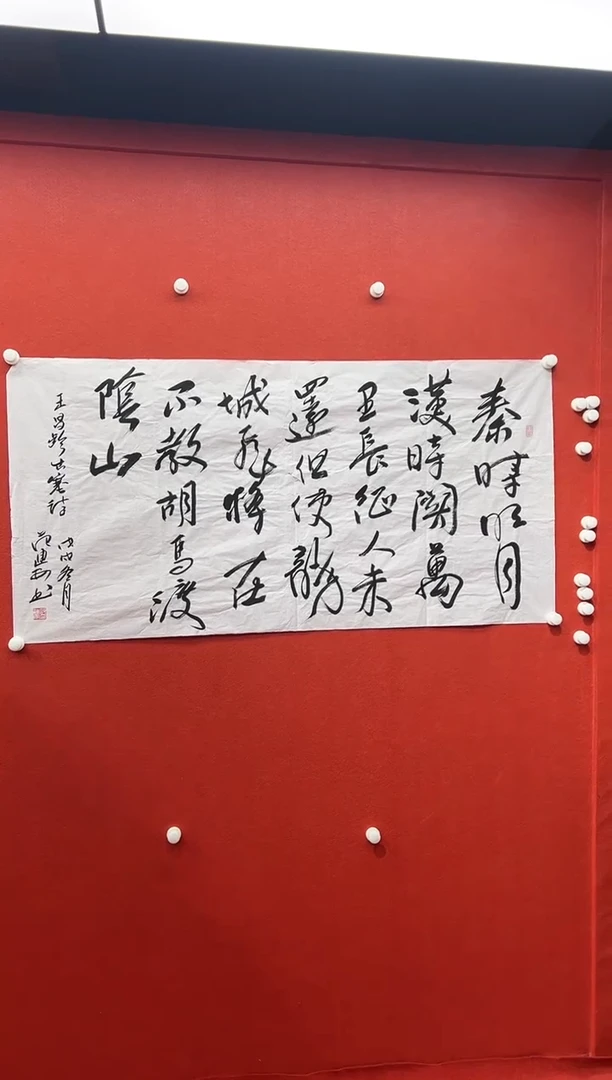 秦時明月
漢時關萬
里長征人未
還但使龍
城飛將在
不教胡馬渡
陰山
王昌齡出塞詩
戊戌冬月